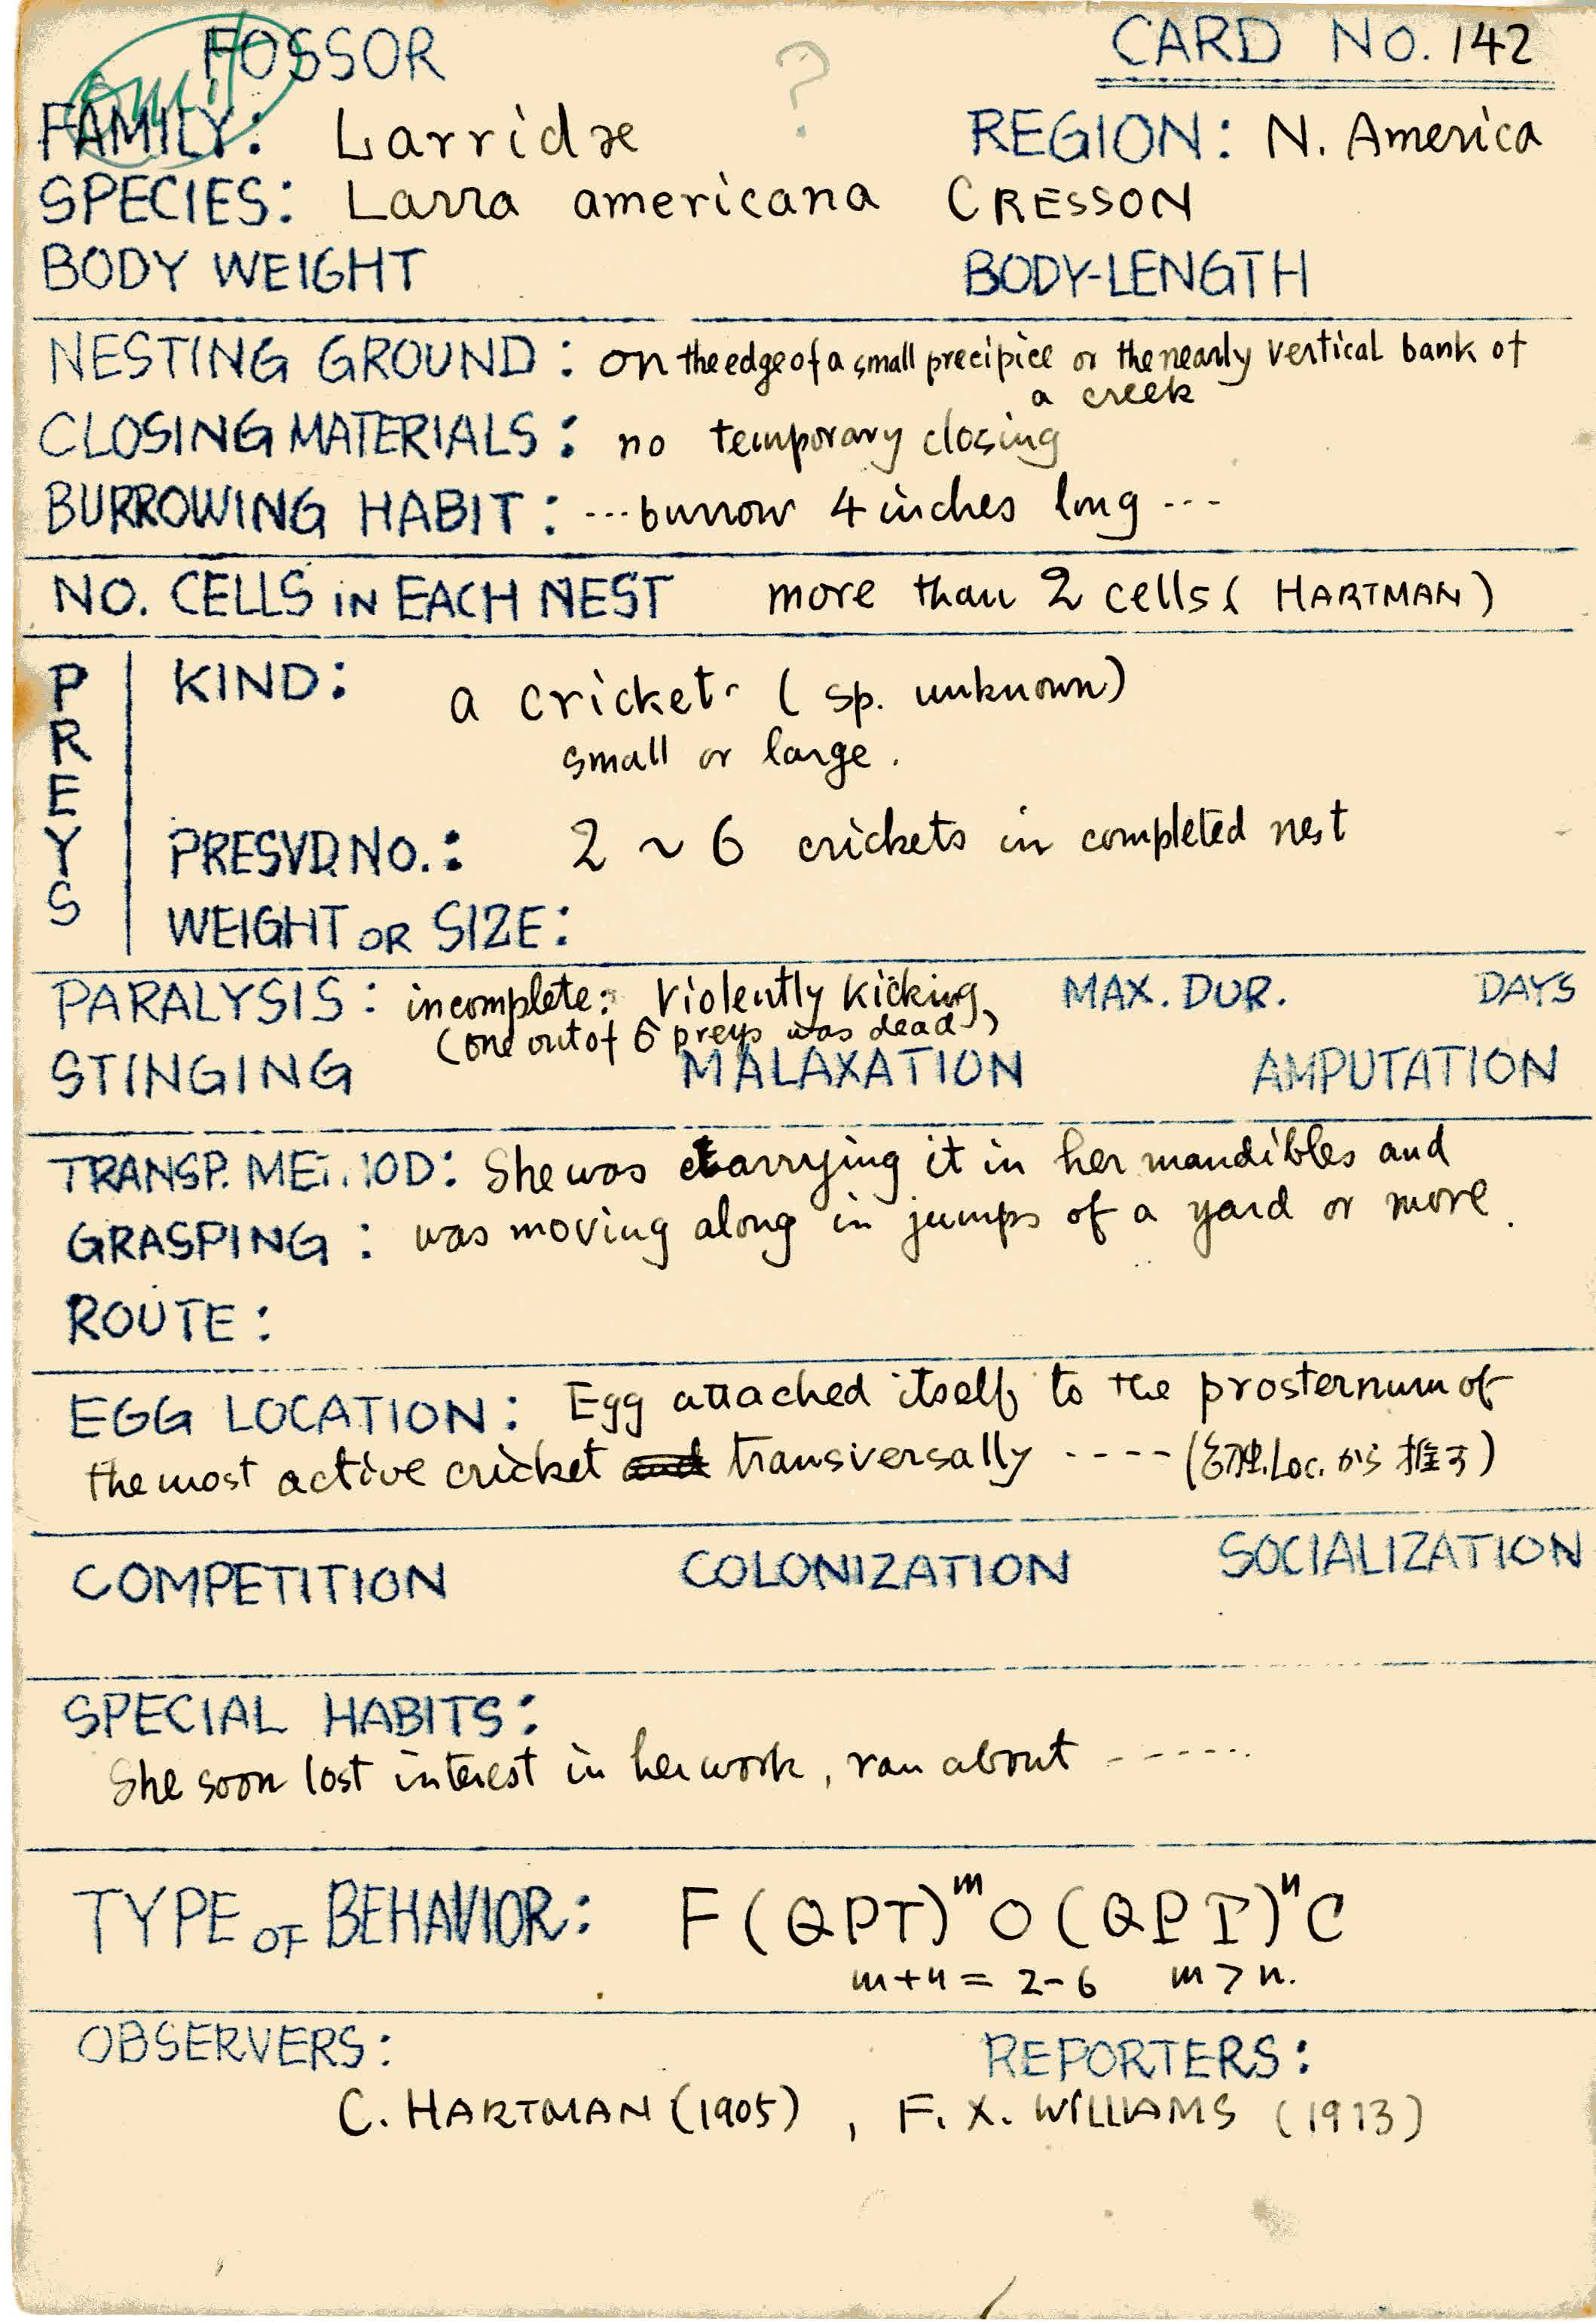 FOSSOR ? CARD NO. 142
FAMILY: Larridæ REGION: N. America
SPECIES: Larra americana CRESSON
BODY WEIGHT BODY-LENGTH
NESTING GROUND: on the edge of a small precipice or the nearly vertical bank of
a creek
CLOSING MATERIALS: no temporary closing
BURROWING HABIT: ...burrow 4 inches long ---
NO. CELLS iN EACH NEST more than 2 cells (HARTMAN)
PREYS
KIND: a cricket (sp. unknown)
small or large.
PRESVD NO.: 2 ~ 6 crickets in completed nest
WEIGHT OR SIZE:
PARALYSIS: incomplete: Violently kicking, MAX. DUR. DAYS
(one out of 6 preys was dead)
STINGING MALAXATION AMPUTATION
TRANSP. METHOD: She was carrying it in her mandibles and
GRASPING: was moving along in jumps of a yard or more.
ROUTE:
EGG LOCATION: Egg attached itself to the prosternum of
the most active cricket transversally ---- ( Loc. から推す)
COMPETITION COLONIZATION SOCIALIZATION
SPECIAL HABITS:
She soon lost interest in her work, ran about ------
TYPE OF BEHAVIOR: F(QPT)ᵐO(QPT)ⁿC
m+n = 2-6 m > n.
OBSERVERS: REPORTERS:
C. HARTMAN (1905), F. X. WILLIAMS (1913)